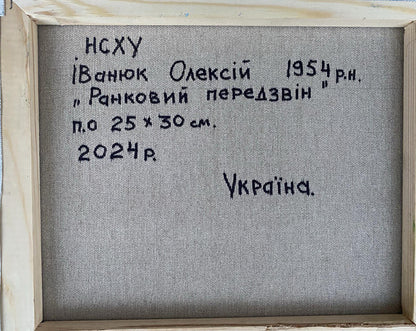 НСХУ
Іванюк Олексій 1954 р.н.
„Ранковий передзвін"
п.о 25 × 30 см.
2024 р.
Україна.